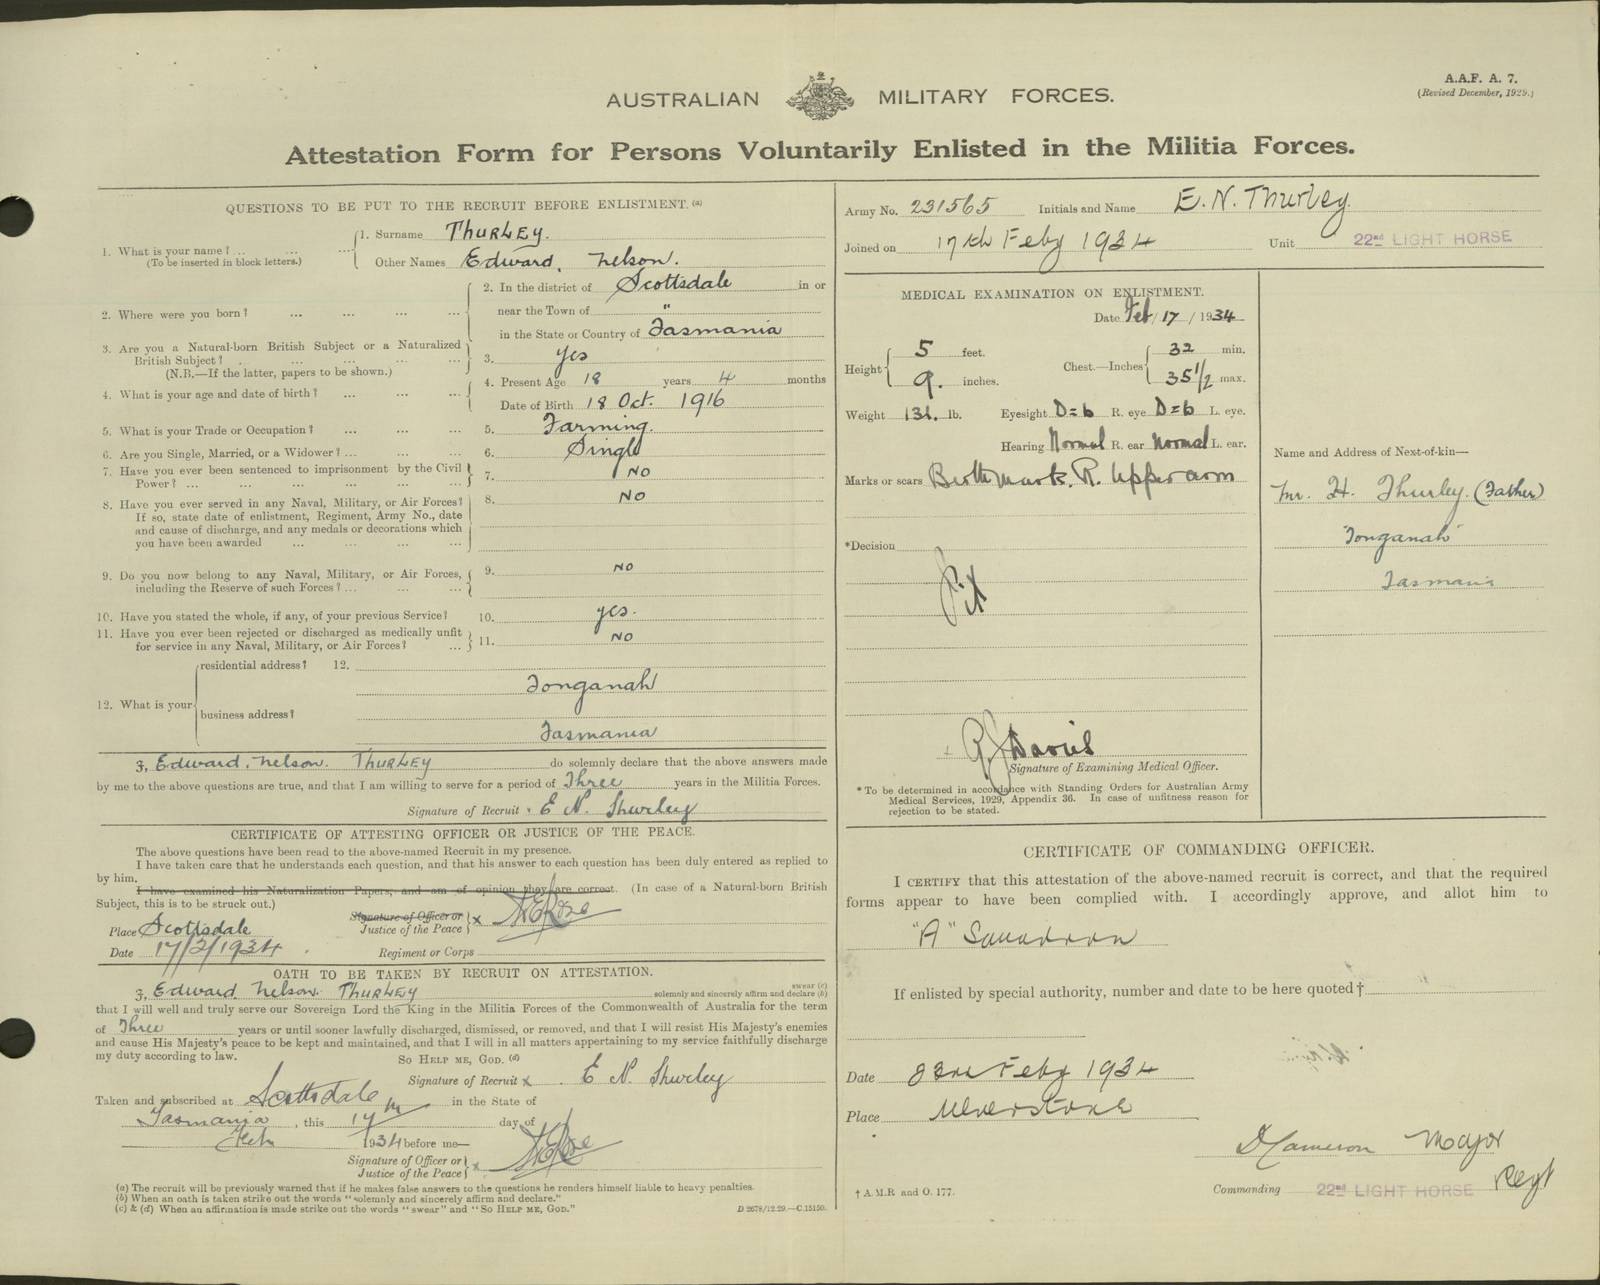 A.A.F. A. 7.
(Revised December, 1929.)
AUSTRALIAN MILITARY FORCES.
Attestation Form for Persons Voluntarily Enlisted in the Militia Forces.
QUESTIONS TO BE PUT TO THE RECRUIT BEFORE ENLISTMENT. (a)
1. What is your name? ... ... ...
(To be inserted in block letters.)
1. Surname THURLEY.
Other Names Edward, Nelson.
2. Where were you born? ... ... ... ...
2. In the district of Scottsdale in or
near the Town of "
in the State or Country of Tasmania
3. Are you a Natural-born British Subject or a Naturalized
British Subject? . ... ... ... ...
(N.B.—If the latter, papers to be shown.)
3. Yes
4. What is your age and date of birth? ... ... ...
4. Present Age 18 years 4 months
Date of Birth 18 Oct. 1916
5. What is your Trade or Occupation? ... ... ...
5. Farming.
6. Are you Single, Married, or a Widower? ... ... ...
6. Single
7. Have you ever been sentenced to imprisonment by the Civil
Power? ... ... ... ... ... ...
7. NO
8. Have you ever served in any Naval, Military, or Air Forces?
If so, state date of enlistment, Regiment, Army No., date
and cause of discharge, and any medals or decorations which
you have been awarded ... ... ... ...
8. NO
9. Do you now belong to any Naval, Military, or Air Forces,
including the Reserve of such Forces? ... ... ...
9. NO
10. Have you stated the whole, if any, of your previous Service?
10. yes.
11. Have you ever been rejected or discharged as medically unfit
for service in any Naval, Military, or Air Forces? ...
11. NO
12. What is your
residential address? 12.
Tonganah
business address?
Tasmania
I, Edward, Nelson. THURLEY do solemnly declare that the above answers made
by me to the above questions are true, and that I am willing to serve for a period of Three years in the Militia Forces.
Signature of Recruit × E N. Thurley
CERTIFICATE OF ATTESTING OFFICER OR JUSTICE OF THE PEACE.
The above questions have been read to the above-named Recruit in my presence.
I have taken care that he understands each question, and that his answer to each question has been duly entered as replied to
by him.
I have examined his Naturalization Papers, and am of opinion they are correct. (In case of a Natural-born British
Subject, this is to be struck out.)
Signature of Officer or
Justice of the Peace x
Place Scottsdale
Date 17/2/1934
Regiment or Corps
OATH TO BE TAKEN BY RECRUIT ON ATTESTATION.
I, Edward, Nelson. THURLEY
swear (c)
solemnly and sincerely affirm and declare (b)
that I will well and truly serve our Sovereign Lord the King in the Militia Forces of the Commonwealth of Australia for the term
of Three years or until sooner lawfully discharged, dismissed, or removed, and that I will resist His Majesty's enemies
and cause His Majesty's peace to be kept and maintained, and that I will in all matters appertaining to my service faithfully discharge
my duty according to law.
SO HELP ME, GOD. (d)
Signature of Recruit x E N. Thurley
Taken and subscribed at Scottsdale in the State of
Tasmania, this 17th day of
Feb 1934 before me—
Signature of Officer or
Justice of the Peace x
(a) The recruit will be previously warned that if he makes false answers to the questions he renders himself liable to heavy penalties.
(b) When an oath is taken strike out the words "solemnly and sincerely affirm and declare."
(c) & (d) When an affirmation is made strike out the words "swear" and "SO HELP ME, GOD."
D 2678/12.29.—C.15150.
Army No. 231565 Initials and Name E. N. Thurley
Joined on 17th Feby 1934 Unit 22nd LIGHT HORSE
MEDICAL EXAMINATION ON ENLISTMENT.
Date Feb / 17 / 1934
Height 5 feet.
9. inches.
Chest.—Inches 32 min.
35 1/2 max.
Weight 131. lb. Eyesight D=6 R. eye D=6 L. eye.
Hearing Normal R. ear Normal L. ear.
Marks or scars Birth mark. R. Upper arm
*Decision
Fit
Signature of Examining Medical Officer.
* To be determined in accordance with Standing Orders for Australian Army
Medical Services, 1929, Appendix 36. In case of unfitness reason for
rejection to be stated.
Name and Address of Next-of-kin—
Mr. H. Thurley. (Father)
"Tonganah"
Tasmania
CERTIFICATE OF COMMANDING OFFICER.
I CERTIFY that this attestation of the above-named recruit is correct, and that the required
forms appear to have been complied with. I accordingly approve, and allot him to
"A" Squadron
If enlisted by special authority, number and date to be here quoted †
Date 23rd Feby 1934
Place Ulverstone
D Cameron Major
Commanding 22nd LIGHT HORSE Regt
† A.M.R. and O. 177.